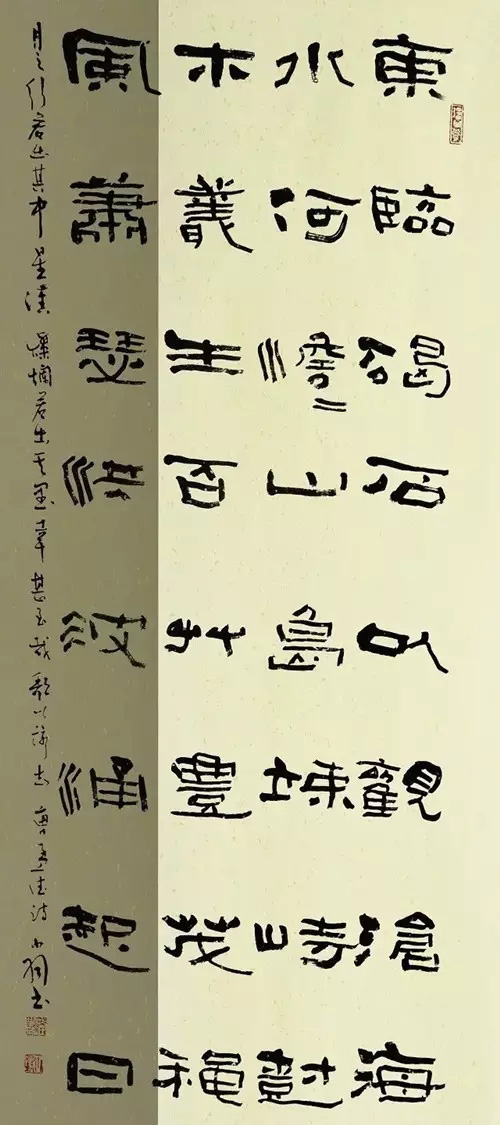 東臨碣石以觀滄海
水何澹=山島竦峙樹
木叢生百艸豐茂穐
風蕭瑟洪波涌起日
月之行若出其中星漢燦爛若出其里幸甚至哉歌以詠志 曹孟德詩 書